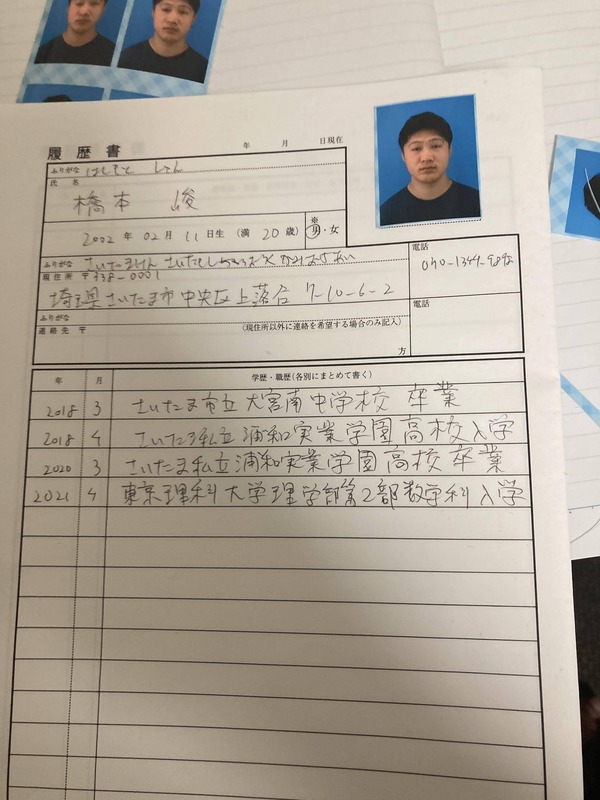 履歴書 年 月 日現在
ふりがな はしもと しゅん
氏名 橋本 峻
2002年 02月 11日生 (満 20歳) ※ 男・女
ふりがな さいたまけん さいたましちゅうおうく かみおちあい
現住所 〒338-0001
埼玉県さいたま市中央区上落合 7-10-6-2
電話
ふりがな
連絡先 〒 (現住所以外に連絡を希望する場合のみ記入)
方
電話
年 月 学歴・職歴(各別にまとめて書く)
2018 3 さいたま市立大宮南中学校 卒業
2018 4 さいたま私立浦和実業学園高校入学
2020 3 さいたま私立浦和実業学園高校卒業
2021 4 東京理科大学理学部第2部数学科入学